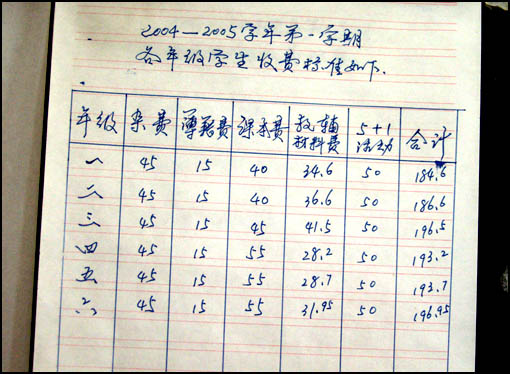 2004—2005学年第一学期
各年级学生收费标准如下.
年级 杂费 簿籍费 课本费 教辅材料费 5+1活动 合计
一 45 15 40 34.6 50 184.6
二 45 15 40 36.6 50 186.6
三 45 15 45 41.5 50 196.5
四 45 15 55 28.2 50 193.2
五 45 15 55 28.7 50 193.7
六 45 15 55 31.95 50 196.95